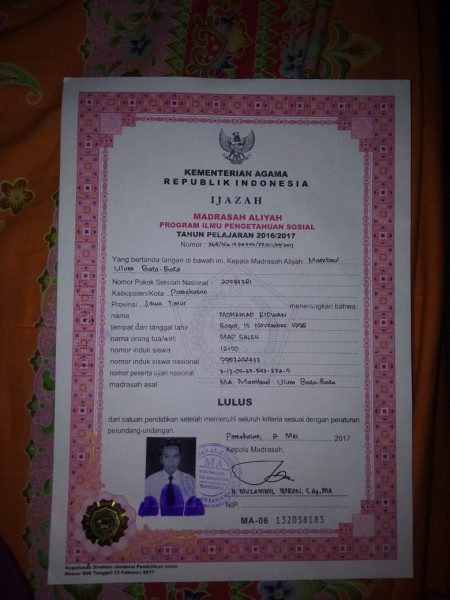 KEMENTERIAN AGAMA
REPUBLIK INDONESIA
IJAZAH
MADRASAH ALIYAH
PROGRAM ILMU PENGETAHUAN SOSIAL
TAHUN PELAJARAN 2016/2017
Nomor :
Yang bertanda tangan di bawah ini, Kepala Madrasah Aliyah Mambaul
Ulum Bata-Bata
Nomor Pokok Sekolah Nasional :
Kabupaten/Kota : Pamekasan
Provinsi : Jawa Timur menerangkan bahwa:
nama MOHAMAD RIDWAN
tempat dan tanggal lahir Bogor, 15 November 1998
nama orang tua/wali MAD SALEH
nomor induk siswa 12190
nomor induk siswa nasional
nomor peserta ujian nasional
madrasah asal MA. Mambaul Ulum Bata-Bata
LULUS
dari satuan pendidikan setelah memenuhi seluruh kriteria sesuai dengan peraturan
perundang-undangan.
Pamekasan, 2 Mei 2017
Kepala Madrasah,
MA
H. MUZAMMIL IMRON, S.Ag, MA
NIP.
MA-06 132038183
Keputusan Direktur Jenderal Pendidikan Islam
Nomor Tanggal 13 Februari 2017